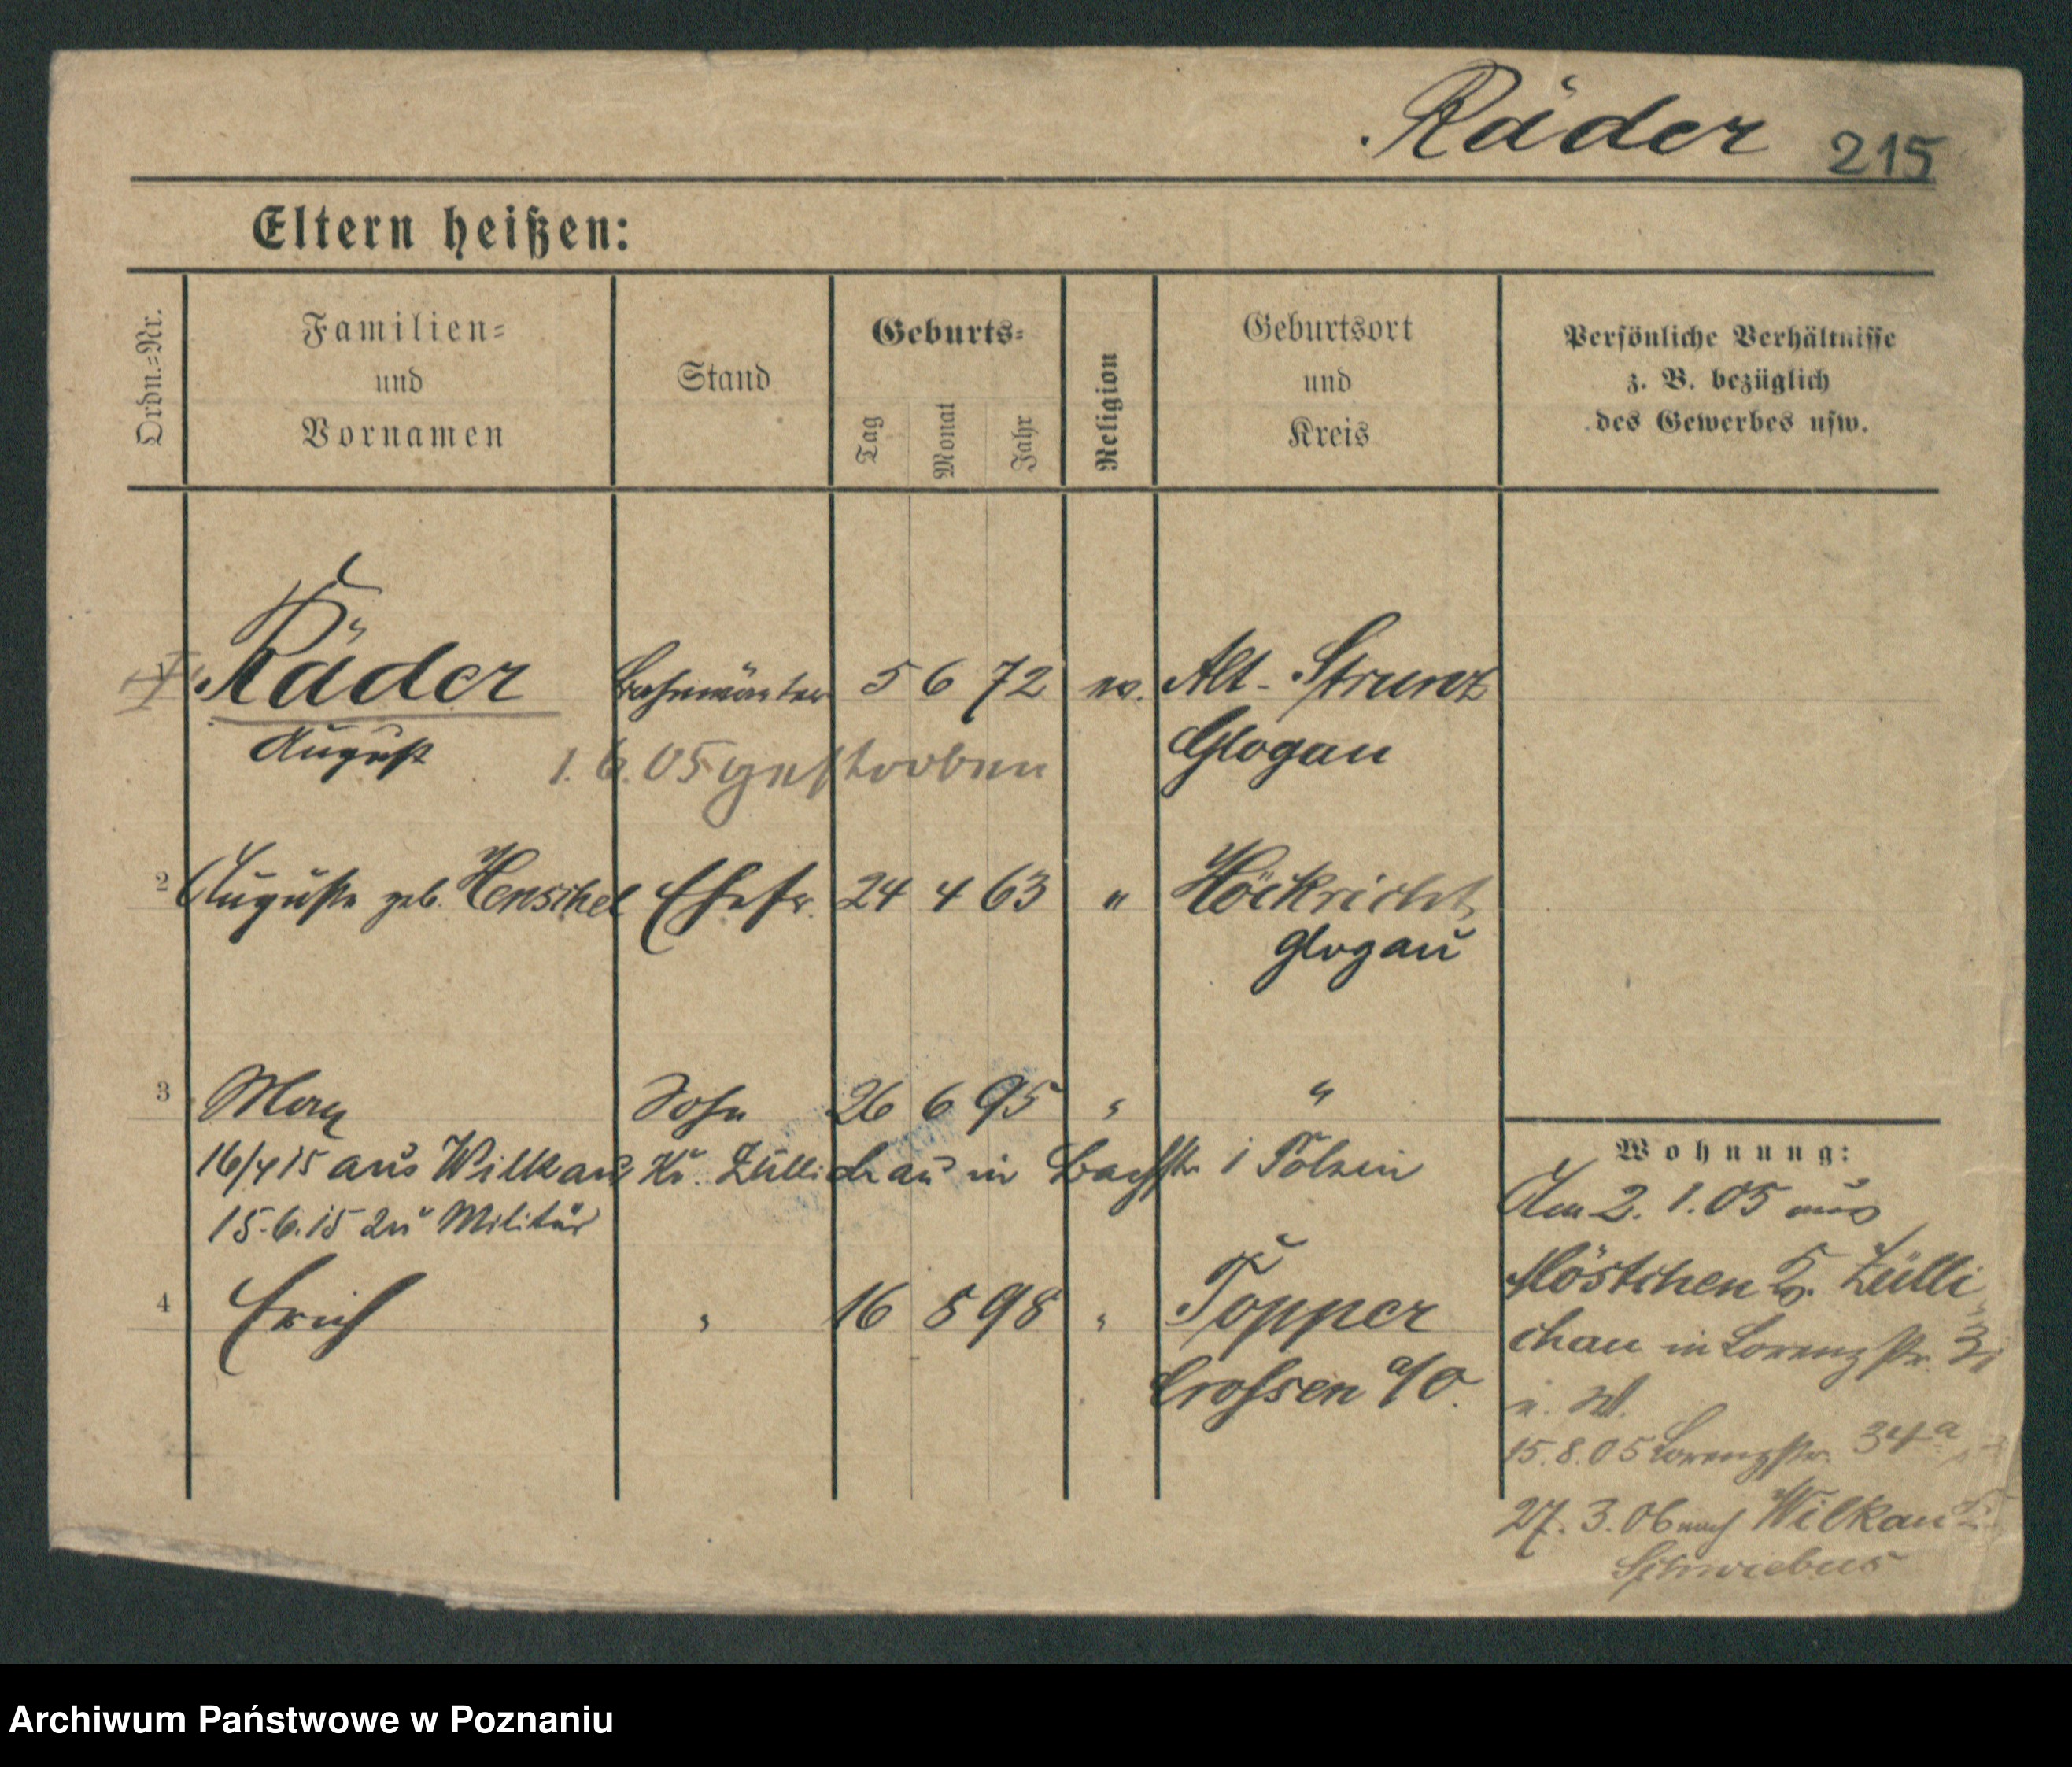 Räder 215
Eltern heißen:
Ordn.-Nr.
Familien-
und
Vornamen
Stand
Geburts-
Tag
Monat
Jahr
Religion
Geburtsort
und
Kreis
Persönliche Verhältnisse
z. B. bezüglich
des Gewerbes usw.
Räder Bahnwärter 5 6 72 ev. Alt-Strunz
August Glogau
1. 6. 05 gestorben
2 Auguste geb. Henschel Ehefr. 24 4 63 " Höckricht
Glogau
3 Max Sohn 26 6 95 " "
16/4 15 aus Wilkau Kr. Züllichau in i
15.6.15 zu Militär
4 Erich " 16 8 98 " Topper
Crossen a/O.
Wohnung:
Am 2. 1. 05 aus
Möstchen Kr. Zülli
chau in Lorenzstr.
15.8.05 Lorenzstr. 34a
27. 3. 06 nach Wilkau
Schwiebus
Archiwum Państwowe w Poznaniu